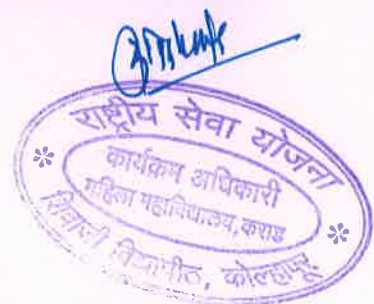 राष्ट्रीय सेवा योजना
कार्यक्रम अधिकारी
महिला महाविद्यालय, कराड
शिवाजी विद्यापीठ, कोल्हापूर